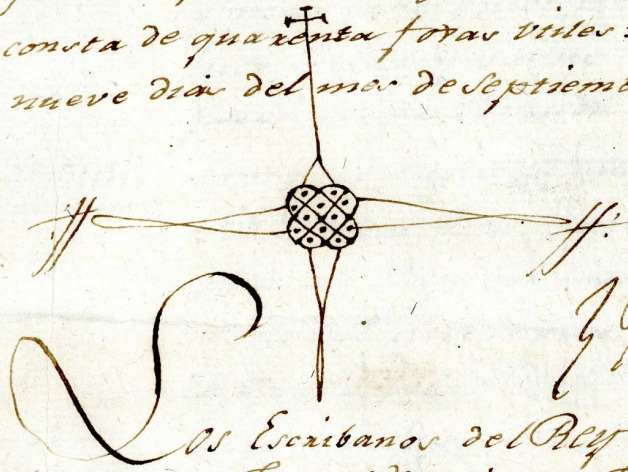 consta de quarenta foxas utiles:
nueve dias del mes de Septiem
Los Escribanos del Rey